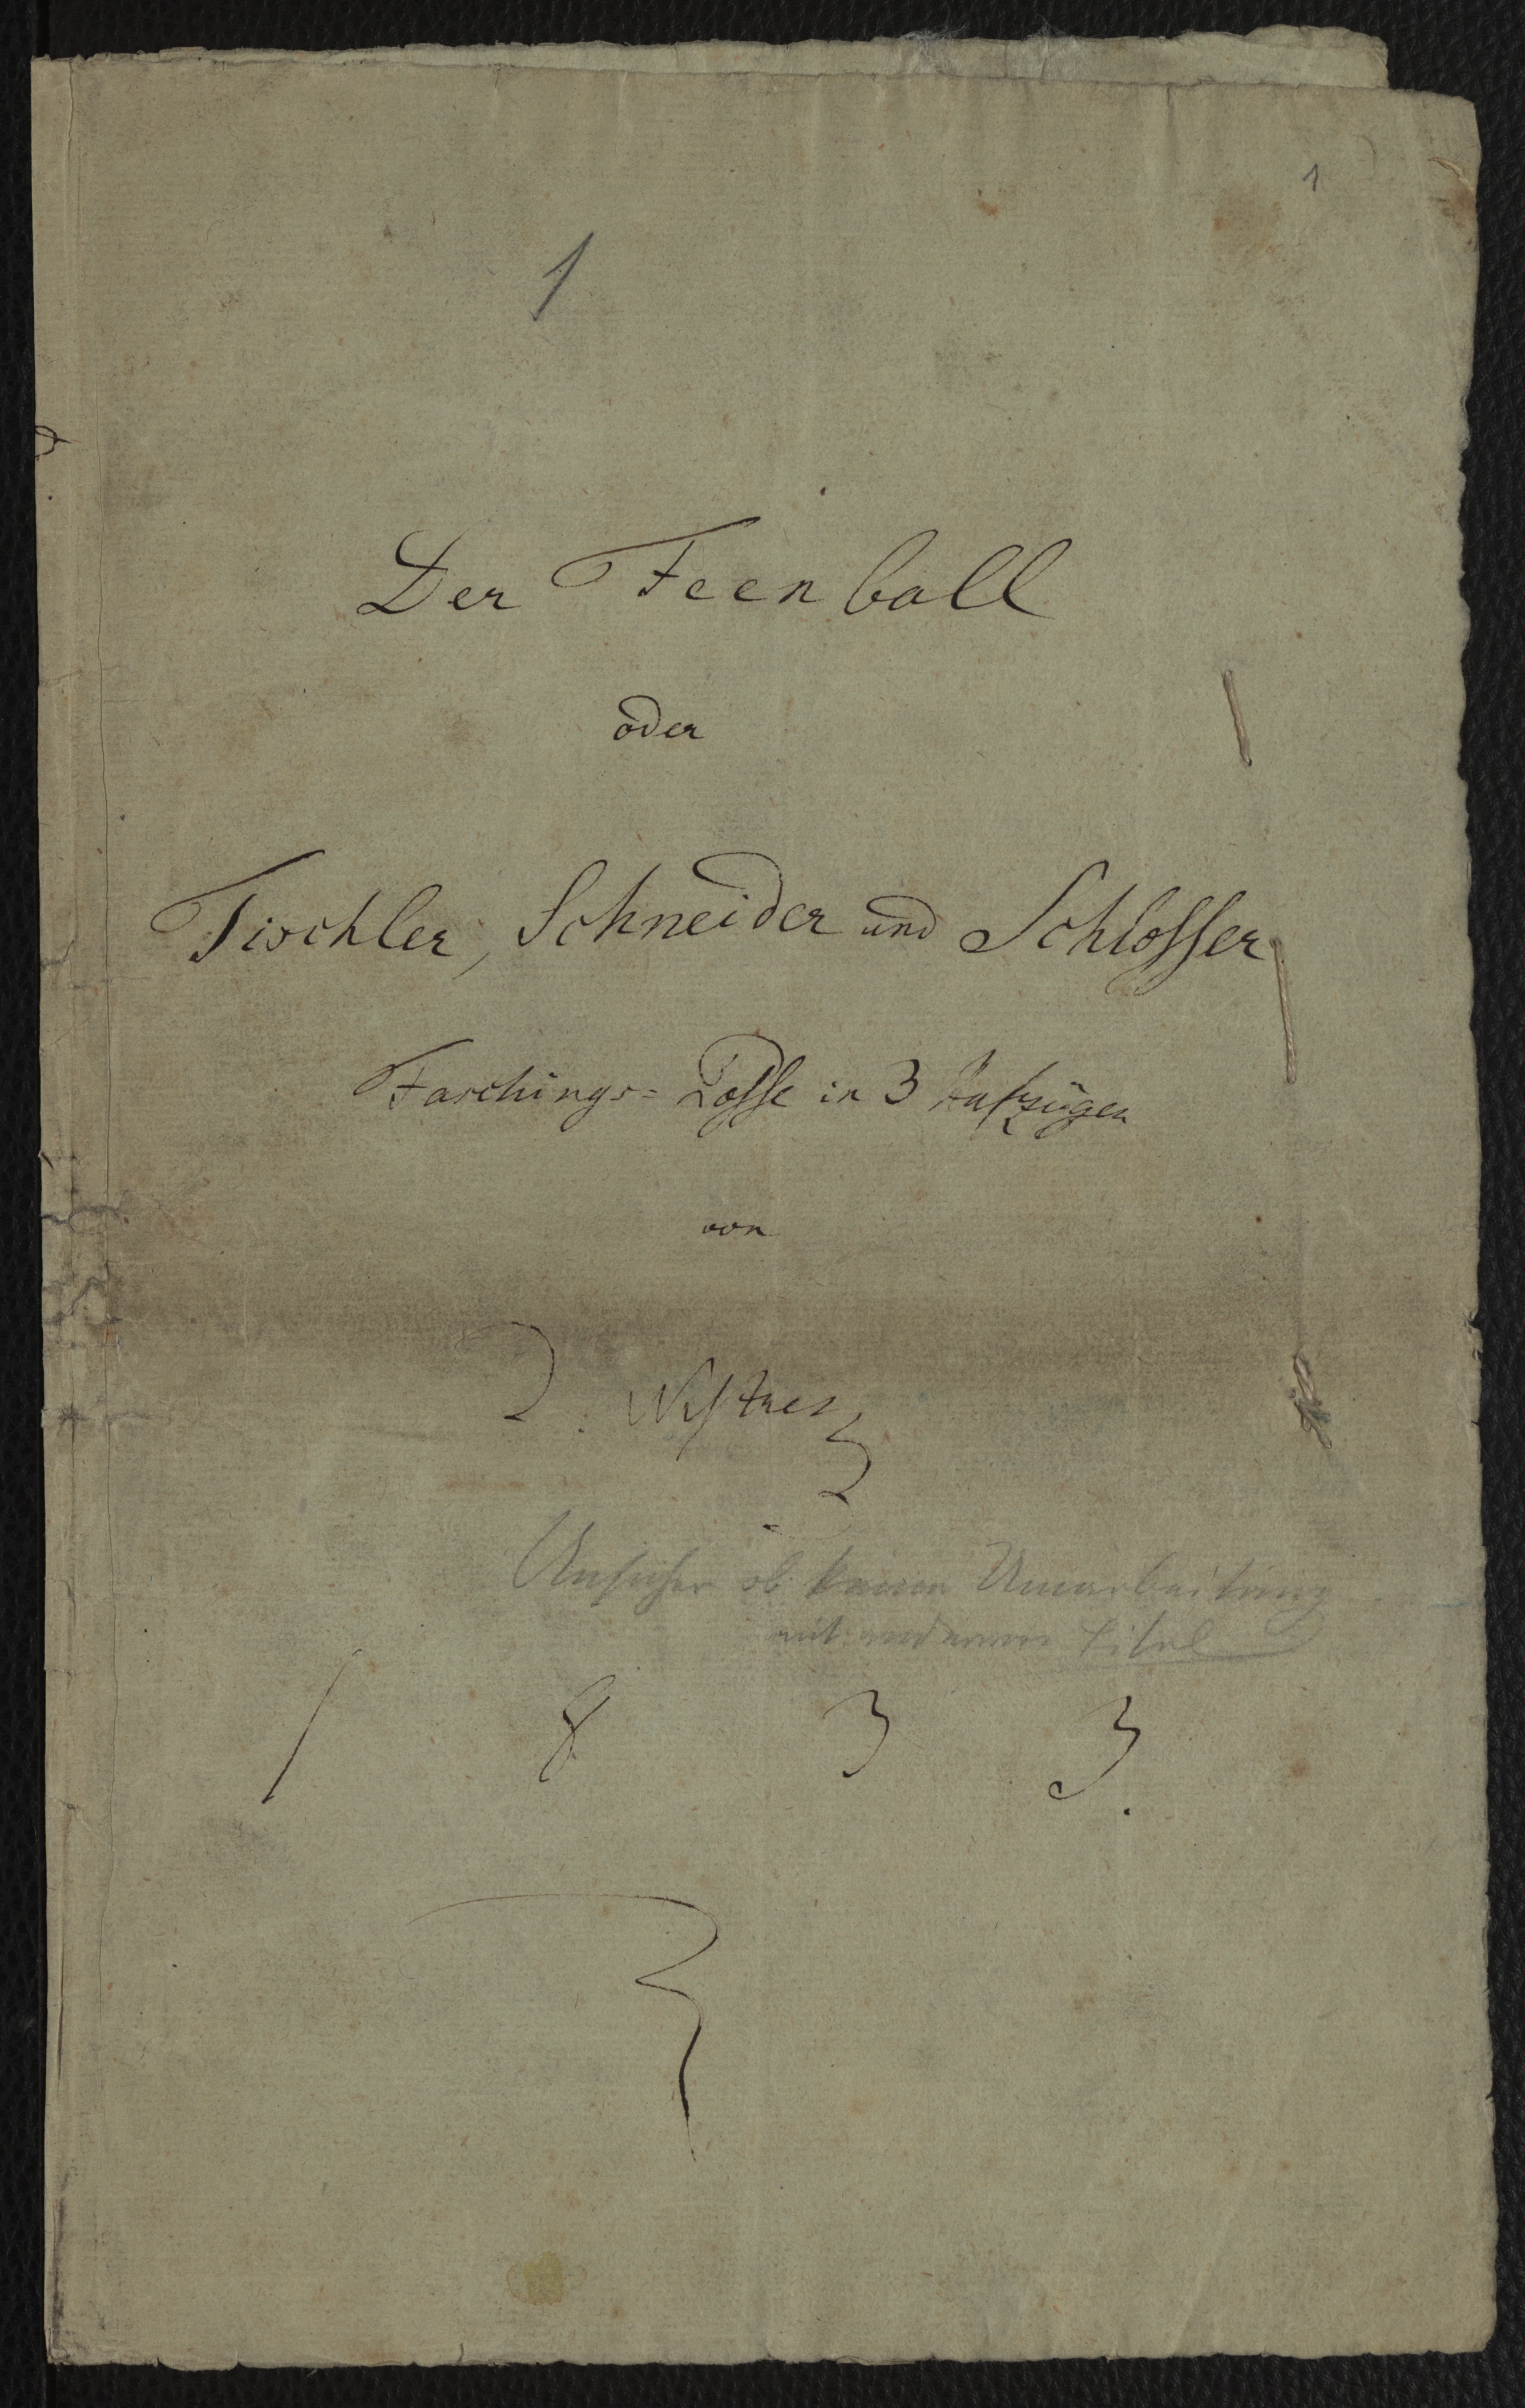 1
1
Der Feenball
oder
Tischler, Schneider und Schlosser
Faschings-Posse in 3 Aufzügen
von
J. Nestroy
ob keine Umarbeitung
mit anderem Titel
1 8 3 3.